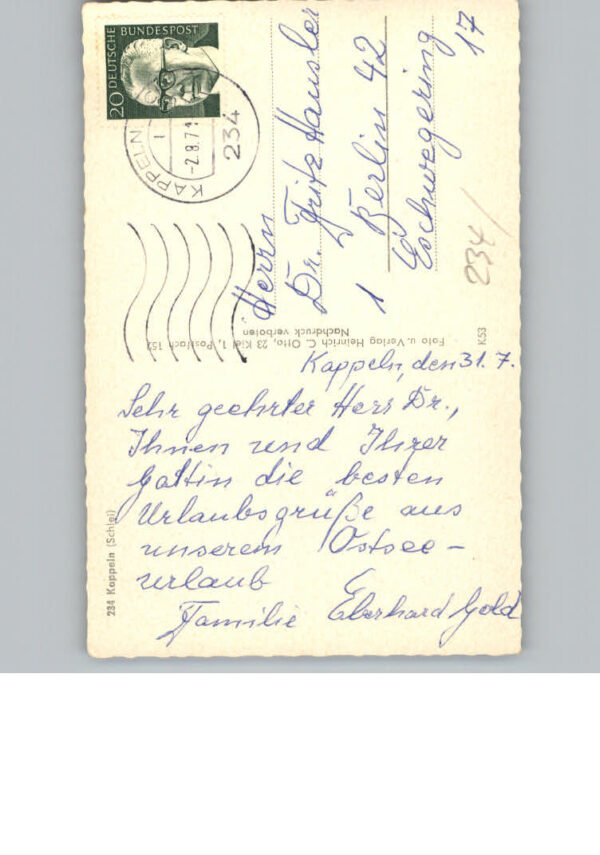 DEUTSCHE BUNDESPOST
20
KAPPELN
-2.8.71
234
Herrn
Dr. Fritz Hausler
1 Berlin 42
Eschwegering 17
234/
Foto u. Verlag Heinrich C. Otto, 23 Kiel 1, Postfach 152
Nachdruck verboten
K53
Kappeln, den 31. 7.
Sehr geehrter Herr Dr.,
Ihnen und Ihrer
Gattin die besten
Urlaubsgrüße aus
unserem Ostsee-
urlaub
Familie Eberhard Gold
234 Kappeln (Schlei)